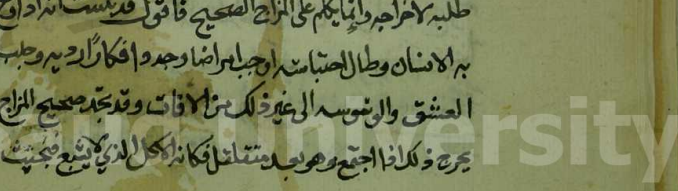 طلبه لاخراجه وانما يكلم على المزاج الصحيح فاقول قد بلست انه اذا وقع
به الانسان وطال احتباسه اوجب امراضا وجدد افكارا رديه وجلب
العشق والوسوسه الى غير ذلك من الافات وقد تجد صحيح المزاج
يخرج ذلك اذا اجتمع وهو بعد متقلقل فكانه الاكل الذي لا يشبع فبحثت
University